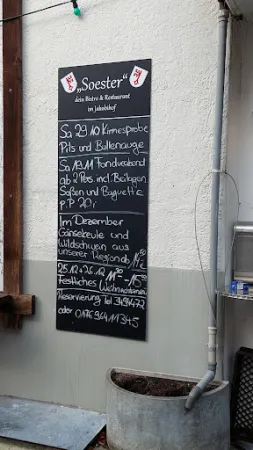 „Soester“
dein Bistro & Restaurant
im Jakobihof
Sa 29.10 Kirmesprobe
Pils und Bullenauge
Sa 19.11 Fondueabend
ab 2 Pers. incl. Beilagen
Soßen und Baguette
p.P 20,-
Im Dezember
Gänsekeule und
Wildschwein aus
unserer Region ab
25.12 + 26.12 11³⁰ - 15⁰⁰
Festliches
Reservierung Tel 3499472
oder 0176 96411345